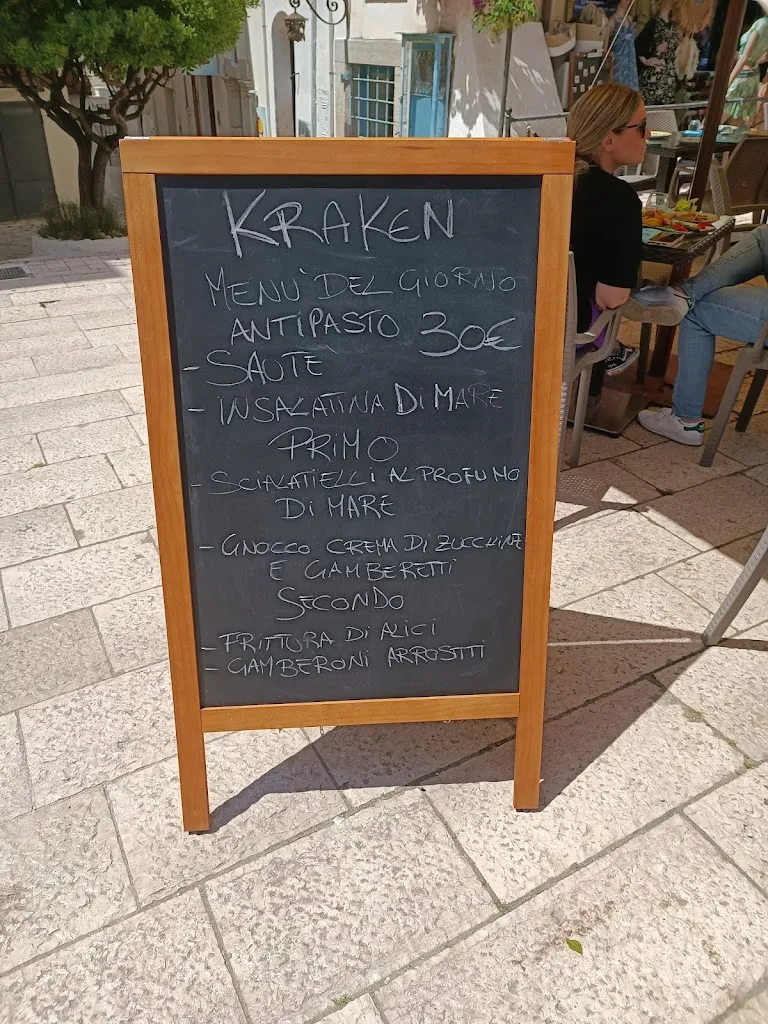 KRAKEN
MENU' DEL GIORNO
ANTIPASTO 30€
- SAUTÈ
- INSALATINA DI MARE
PRIMO
- SCIALATIELLI AL PROFUMO
DI MARE
- GNOCCO CREMA DI ZUCCHINE
E GAMBERETTI
SECONDO
- FRITTURA DI ALICI
- GAMBERONI ARROSTITI